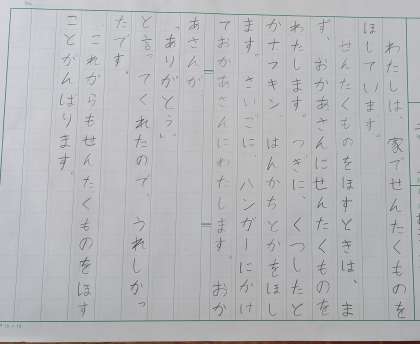 わたしは、家でせんたくものを
ほしています。
せんたくものをほすときは、ま
ず、おかあさんにせんたくものを
わたします。つぎに、くつしたと
かナフキン はんかちとかをほし
ます。さいごに、ハンガーにかけ
ておかあさんにわたします。おか
あさんが、
「ありがとう」
と言ってくれたので、うれしかっ
たです。
これからもせんたくものをほす
ことがんばります。